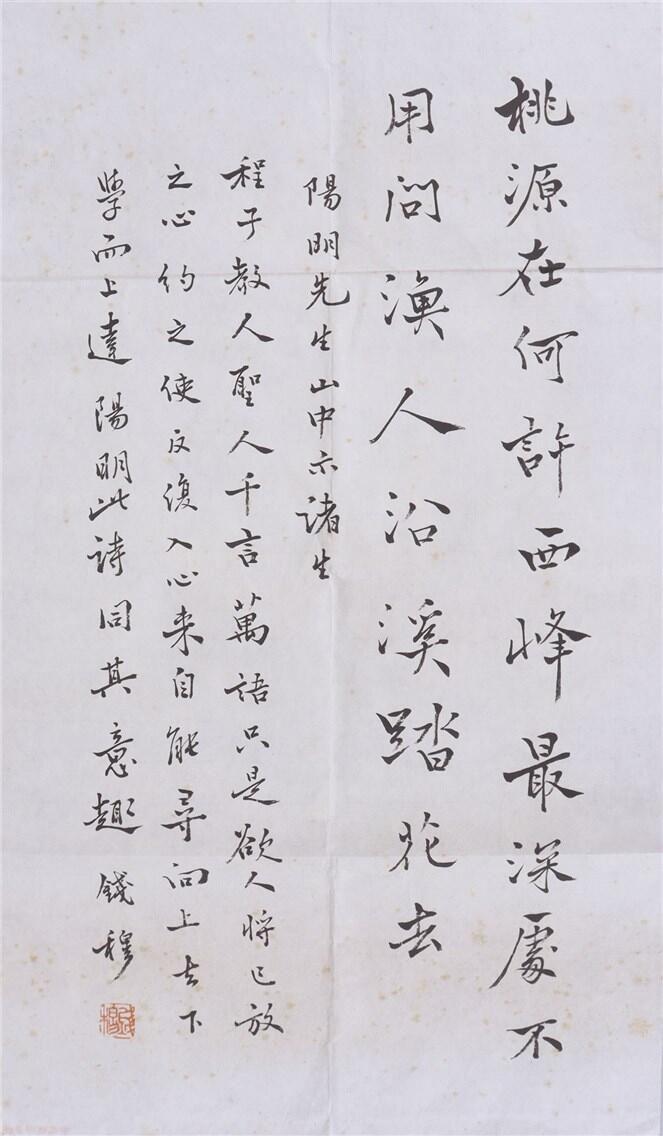 桃源在何許西峰最深處不
用問漁人沿溪踏花去
陽明先生山中示諸生
程子教人聖人千言萬語只是欲人將已放
之心約之使反復入心來自能尋向上去下
學而上達陽明此詩同其意趣 錢穆
錢穆